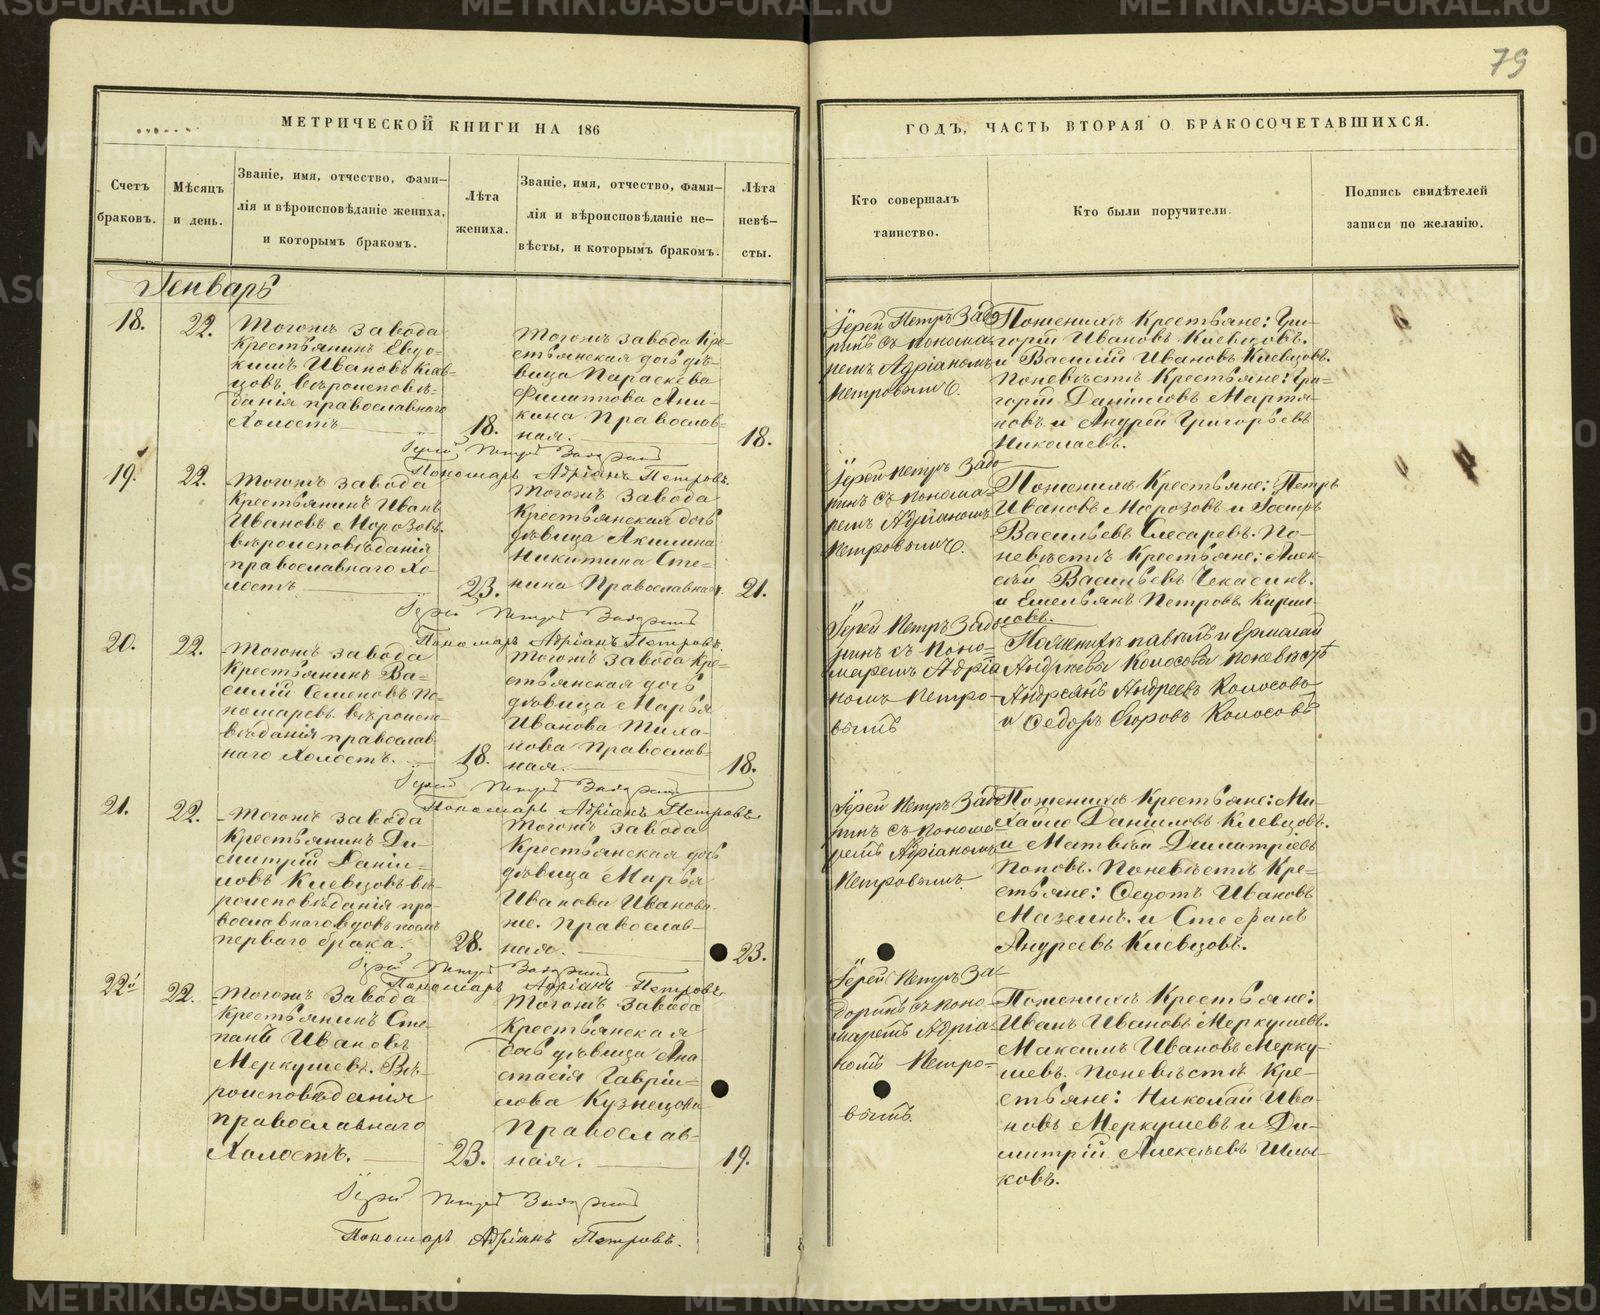 79
МЕТРИЧЕСКОЙ КНИГИ НА 186
ГОДЪ, ЧАСТЬ ВТОРАЯ О БРАКОСОЧЕТАВШИХСЯ.
Счетъ
браковъ.
Мѣсяцъ
и день.
Званіе, имя, отчество, фами-
лія и вѣроисповѣданіе жениха,
и которымъ бракомъ.
Лѣта
жениха.
Званіе, имя, отчество, фами-
лія и вѣроисповѣданіе не-
вѣсты, и которымъ бракомъ.
Лѣта
невѣ-
сты.
Кто совершалъ
таинство.
Кто были поручители.
Подпись свидѣтелей
записи по желанію.
Генварь
18.
22.
Тогожъ завода
Крестьянинъ Евдо-
кимъ Ивановъ Клев-
цовъ вѣроисповѣ-
данія православнаго
Холостъ
18.
Тогожъ завода Кре-
стьянская дочь дѣ-
вица Параскева
Филиппова Ани-
кина Православ-
ная.
18.
Іерей Петръ Задо-
ринъ съ понома-
ремъ Адріаномъ
Петровымъ.
Поженихѣ Крестьяне: Гри-
горій Ивановъ Клевцовъ.
и Василій Ивановъ Клевцовъ.
Поневѣстѣ Крестьяне: Гри-
горій Даниловъ Мартя-
новъ и Андрей Григорьевъ
Николаевъ.
Іерей Петръ Задоринъ
Пономарь Адріанъ Петровъ.
19.
22.
Тогожъ завода
Крестьянинъ Иванъ
Ивановъ Морозовъ
вѣроисповѣданія
православнаго Хо-
лостъ
23.
Тогожъ завода
Крестьянская дочь
дѣвица Акилина
Никитина Сте-
нина Православная.
21.
Іерей Петръ Задо-
ринъ съ понома-
ремъ Адріаномъ
Петровымъ.
Поженихѣ Крестьяне: Петръ
Ивановъ Морозовъ и
Васильевъ Слесаревъ. По-
невѣстѣ Крестьяне: Алек-
сѣй Васильевъ Чекасинъ.
и Емельянъ Петровъ Кирил-
ловъ.
Іерей Петръ Задоринъ
Пономарь Адріанъ Петровъ.
20.
22.
Тогожъ завода
Крестьянинъ Ва-
силій Семеновъ По-
номаревъ вѣроиспо-
вѣданія православ-
наго Холостъ.
18.
Тогожъ завода Кре-
стьянская дочь
дѣвица Марья
Иванова Тиха-
нова Православ-
ная.
18.
Іерей Петръ Задо-
ринъ съ поно-
маремъ Адріа-
номъ Петро-
вымъ
Поженихѣ Павелъ и Ермолай
Андреевы Колосовы поневѣстѣ
Андреянъ Андреевъ Колосовъ
и Федоръ Егоровъ Колосовъ
Іерей Петръ Задоринъ
Пономарь Адріанъ Петровъ
21.
22.
Тогожъ завода
Крестьянинъ Ди-
митрій Даніи-
ловъ Клевцовъ вѣ-
роисповѣданія пра-
вославнаго вдовъ послѣ
перваго брака.
28.
Тогожъ завода
Крестьянская дочь
дѣвица Марья
Иванова Иванова-
же. Православ-
ная.
23.
Іерей Петръ Задо-
ринъ съ понома-
ремъ Адріаномъ
Петровымъ.
Поженихѣ Крестьяне: Ми-
хайло Даниловъ Клевцовъ.
и Матвѣй Димитріевъ
Поповъ. Поневѣстѣ Кре-
стьяне: Федотъ Ивановъ
Мазеинъ. и Стефанъ
Андреевъ Клевцовъ.
Іерей Петръ Задоринъ
Пономарь Адріанъ Петровъ
22.
22.
Тогожъ Завода
Крестьянинъ Сте-
панъ Ивановъ
Меркушевъ. Вѣ-
роисповѣданія
православнаго
Холостъ.
23.
Тогожъ Завода
Крестьянская
дочь дѣвица Ана-
стасія Гавріи-
лова Кузнецова
Православ-
ная.
19.
Іерей Петръ За-
доринъ съ поно-
маремъ Адріа-
номъ Петро-
вымъ.
Поженихѣ Крестьяне:
Иванъ Ивановъ Меркушевъ.
Максимъ Ивановъ Мерку-
шевъ. Поневѣстѣ Кре-
стьяне: Николай Ива-
новъ Меркушевъ и Ди-
митрій Алексѣевъ Шлы-
ковъ.
Іерей Петръ Задоринъ
Пономарь Адріанъ Петровъ.
METRIKI.GASO-URAL.RU